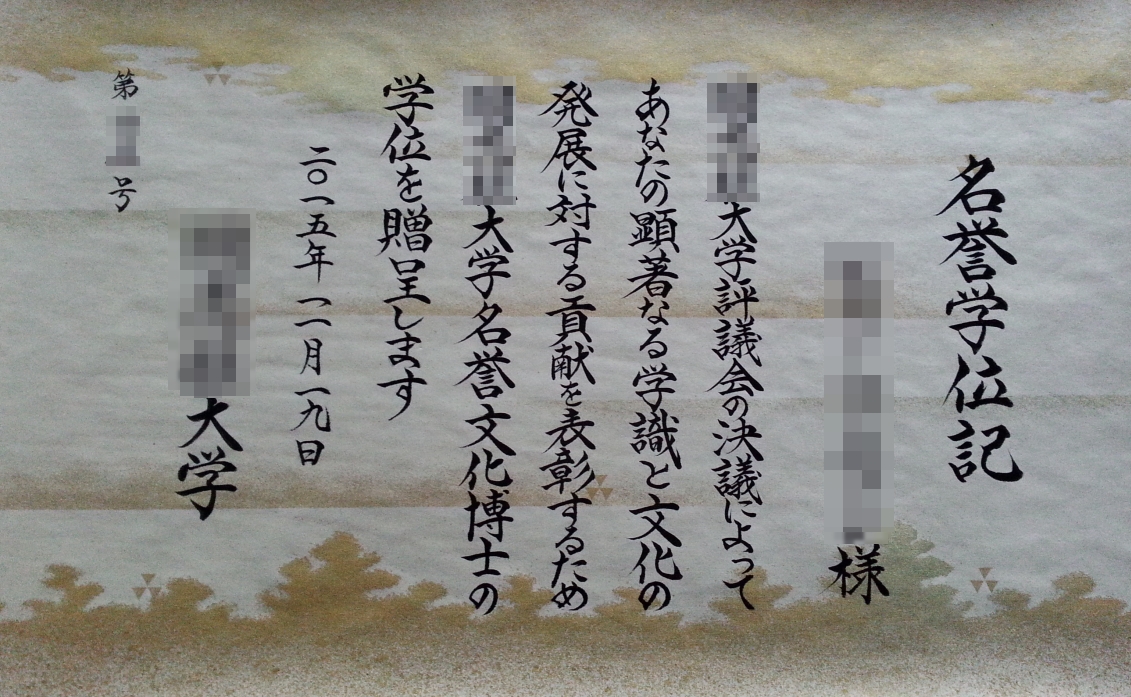 名誉学位記
様
大学評議会の決議によって
あなたの顕著なる学識と文化の
発展に対する貢献を表彰するため
大学名誉文化博士の
学位を贈呈します
二〇一五年一一月一九日
大学
第 号